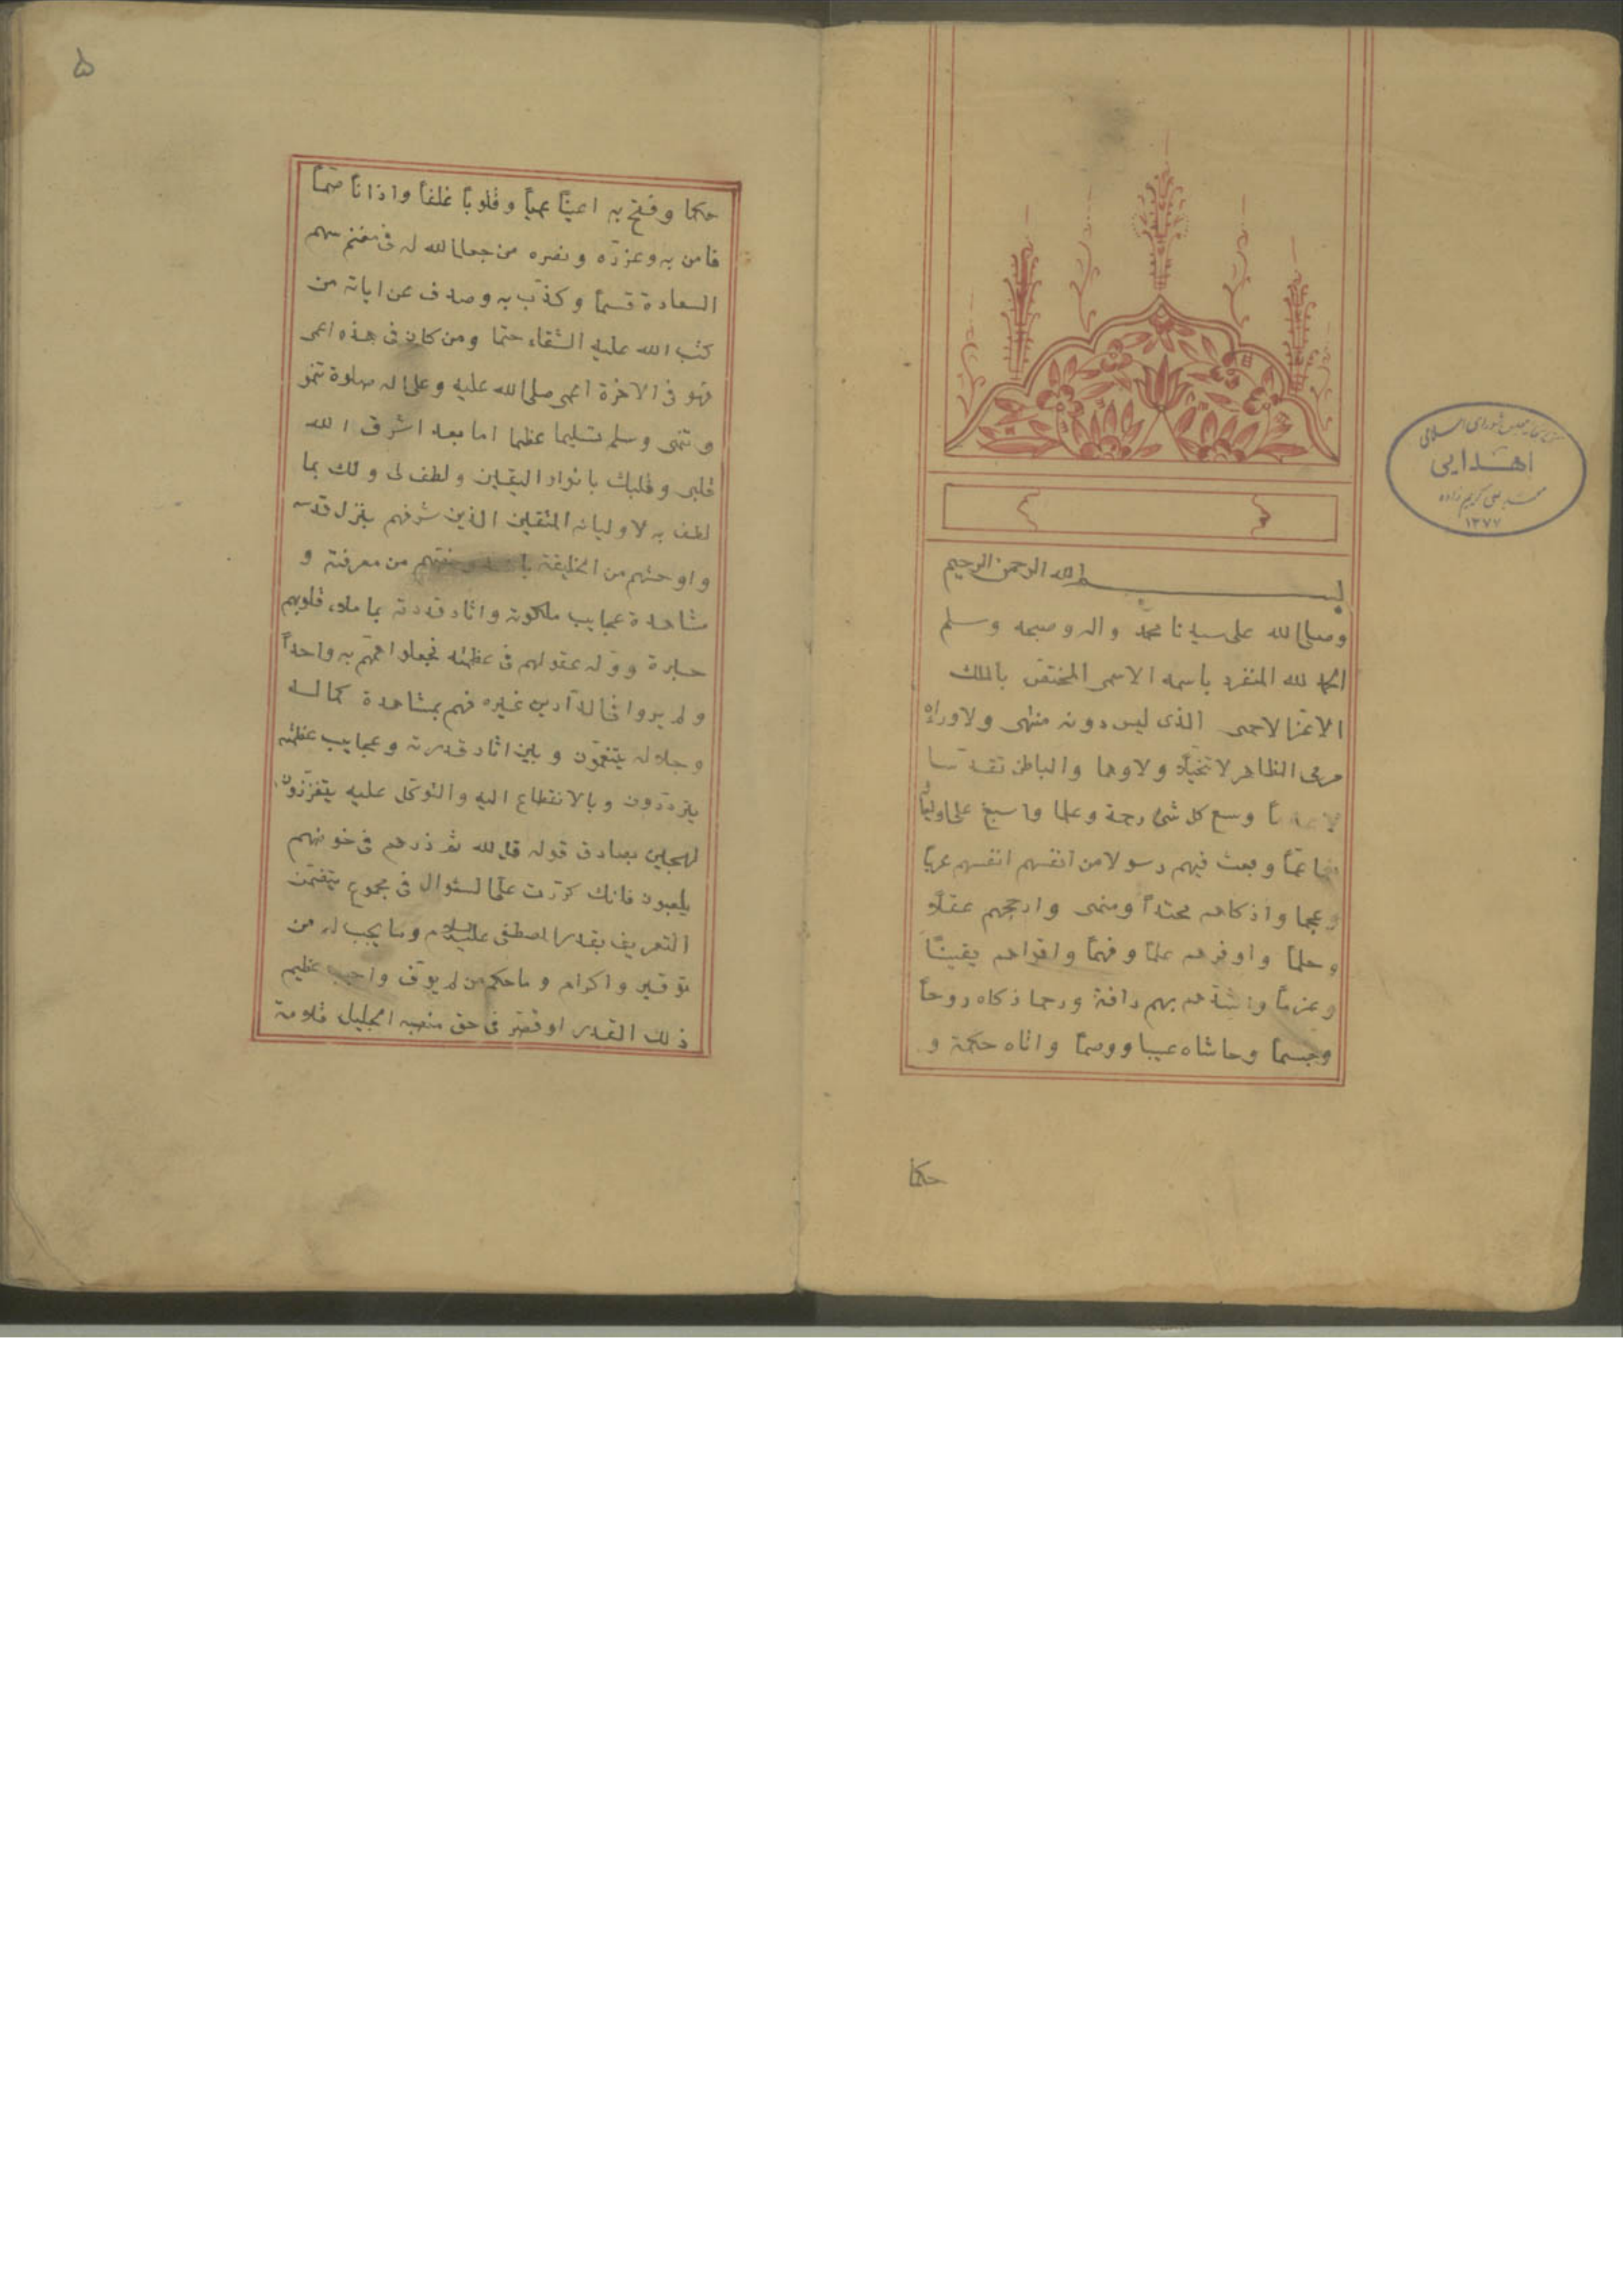 بسم الله الرحمن الرحيم
وصلى الله على سيدنا محمد واله وصحبه وسلم
الحمد لله المنفرد باسمه الاسمى المختصّ بالملك
الاعزّ الاحمى الذى ليس دونه منتهى ولا وراءه
مرمى الظاهر لا تخيّلا ولا وهما والباطن تقدّسا
لا وسع كل شئ رحمة وعلما واسبغ على اوليائه
عمّاً وبعث فيهم رسولا من انفسهم انفسهم عرباً
وعجما واذكاهم محتداً ومنمى وارجحهم عقلاً
وحلماً واوفرهم علماً وفهماً واقواهم يقيناً
وعزماً واشدّهم بهم رافة ورحما زكاه روحاً
وجسماً وحاشاه عيبا ووصماً واتاه حكمة و
حكما
۵
حكما وفتح به اعيناً عمياً وقلوباً غلفاً واذاناً صمّاً
فامن به وعزّره ونصره من جعل الله له فى مغنم سهم
السعادة قسماً وكذّب به وصدف عن اياته من
كتب الله عليه الشقاء حتما ومن كان فى هذه اعمى
فهو فى الاخرة اعمى صلى الله عليه وعلى اله صلوة تنمو
وتنمى وسلم تسليما عظيما اما بعد اشرق الله
قلبى وقلبك بانوار اليقين ولطف لى ولك بما
لطف به لاوليائه المتقين الذين شرفهم بنزل قدسه
واوحشهم من الخليقة من معرفته و
مشاهدة عجايب ملكوته واثار قدرته بما ملاء قلوبهم
حبرة وولّه عقولهم فى عظمته فجعلوا همّهم به واحداً
ولم يروا فى الدارين غيره فهم بمشاهدة كماله
وجلاله يتنعّمون وبين اثار قدرته وعجايب عظمته
يتردّدون وبالانقطاع اليه والتوكّل عليه يتعزّزون
لهجين بصادق قوله قل الله ثم ذرهم فى خوضهم
يلعبون فانك كرّرت علىّ السئوال فى مجموع يتضمّن
التعريف بقدر المصطفى عليه السلام وما يجب له من
توقير واكرام وما حكم من لم يوفّ واجب عظيم
ذلك القدر او قصّر فى حق منصبه الجليل قلامة
كتابخانه مجلس شوراى اسلامى
اهدايى
محمد على كريم زاده
۱۳۷۷